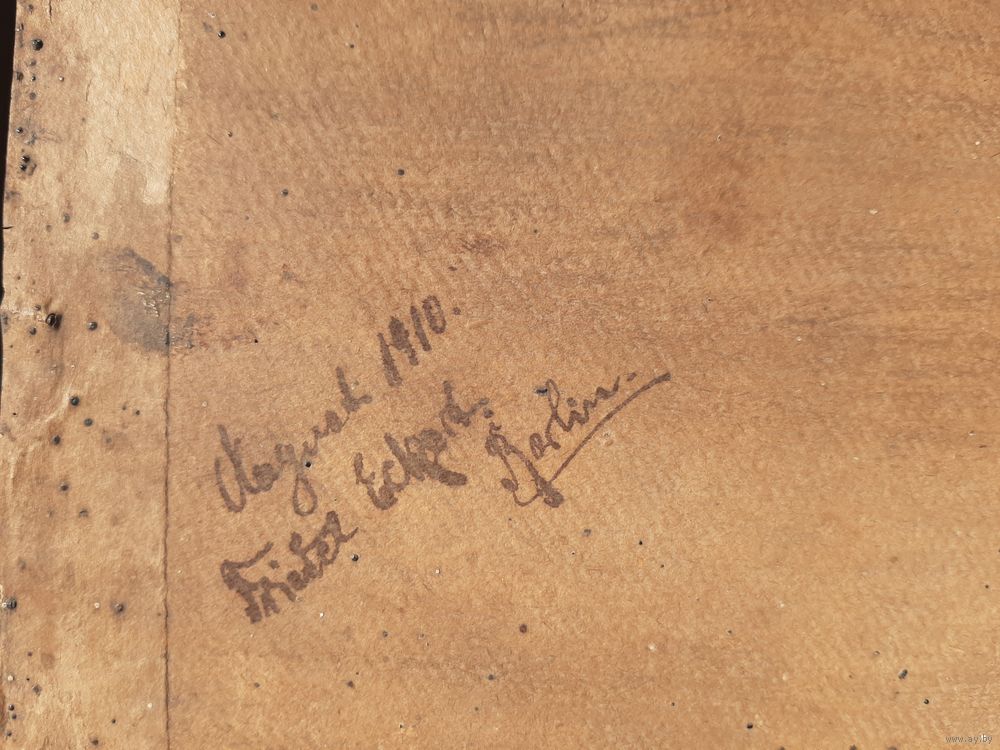 August 1910.
Friedel Eckard.
Berlin.
www.ay.by